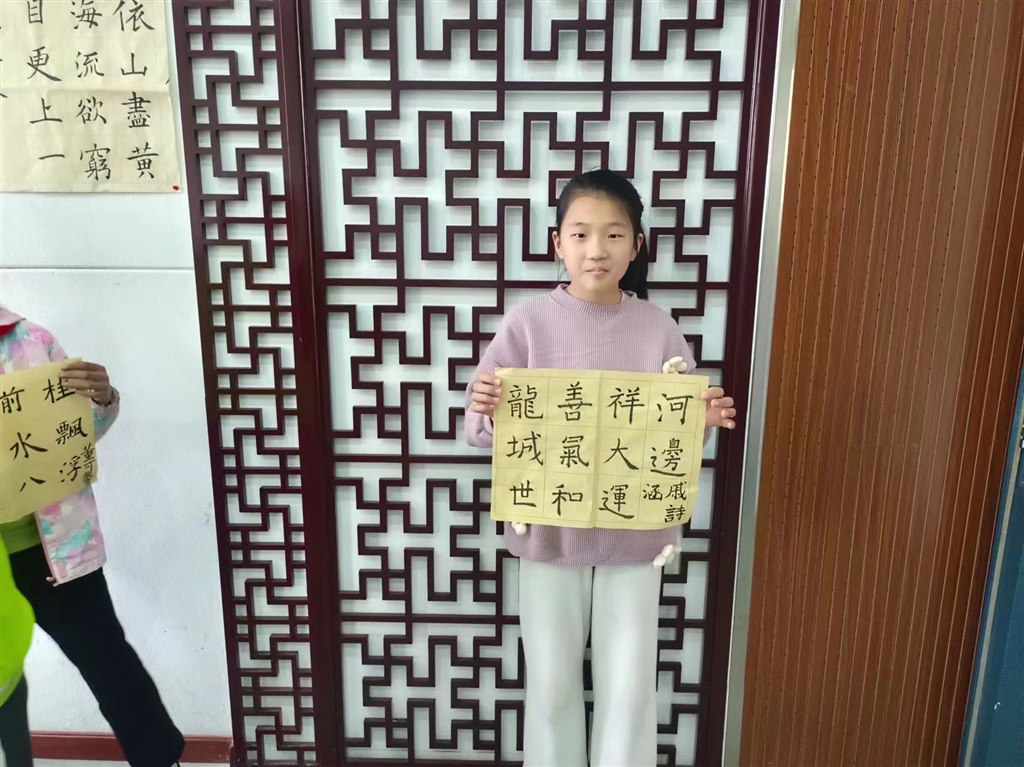 依山盡黄
海流欲窮
目更上一
桂飄浮
董
前水八
河邊
戚詩
涵
祥大運
善氣和
龍城世